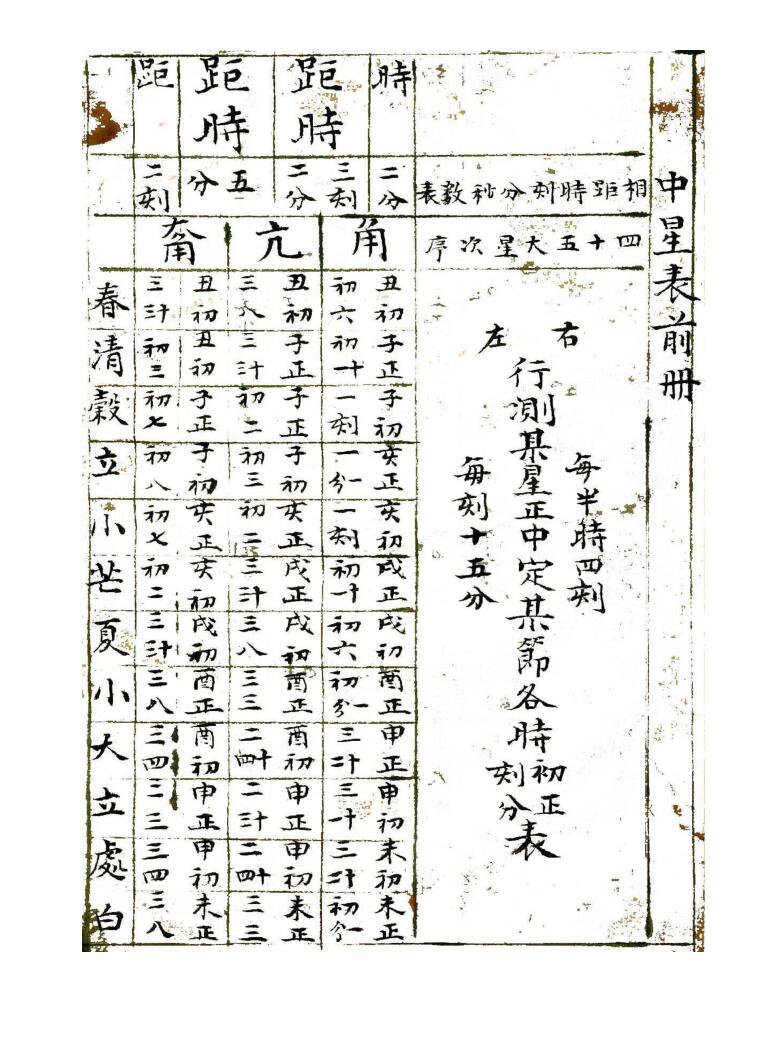 中星表前冊
相距時刻分秒數表
四十五大星次序
右
左
每半時四刻
行測某星正中定某節各時初正刻分表
每刻十五分
時
二分
距時
三刻
二分
距時
五分
距
二刻
角
丑初 初六
子正 初十一
子初 一刻
亥正 一一分
亥初 一刻
戌正 初十一
戌初 初六
酉正 初一分
申正 三十二
申初 三十一
未初 三十二
未正 初一分
亢
丑初 三八
子正 三十三
子正 初二
子初 初三
亥正 初二
戌正 三十三
戌初 三八
酉正 三三
酉初 二十四
申正 二十三
申初 二十四
未正 三三
丑初 三十三
丑初 初三
子正 初七
子初 初八
亥正 初七
亥初 初二
戌初 三十三
酉正 三八
酉初 三四
申正 三三
申初 三四
未正 三八
春
清
穀
立
小
芒
夏
小
大
立
處
白